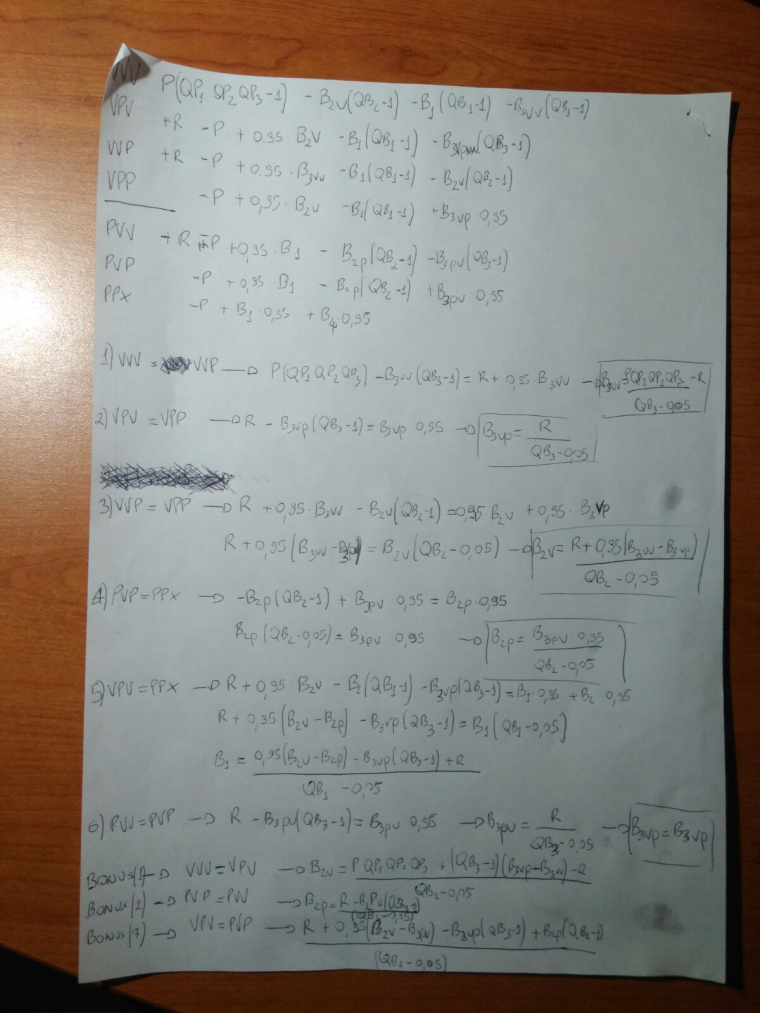 VVV P(QP₁ QP₂ QP₃-1) - B₂v(QB₂-1) - B₁(QB₁-1) - B₃vv(QB₃-1)
VPV +R -P + 0.95·B₂v - B₁(QB₁-1) - B₃vp(QB₃-1)
VVP +R -P + 0,95·B₃vv - B₁(QB₁-1) - B₂v(QB₂-1)
VPP -P + 0,95·B₂v - B₁(QB₁-1) + B₃vp·0,95
PVV +R -P + 0,95·B₁ - B₂p(QB₂-1) - B₃pv(QB₃-1)
PVP -P + 0,95 B₁ - B₂p(QB₂-1) + B₃pv·0,95
PPX -P + B₁·0,95 + B₂p·0,95
1) VVV = VVP → P(QP₁ QP₂ QP₃) - B₃vv(QB₃-1) = R + 0,95·B₃vv → B₃vv = P QP₁ QP₂ QP₃ - R / QB₃-0,05
2) VPV = VPP → R - B₃vp(QB₃-1) = B₃vp·0,95 → B₃vp = R / QB₃-0,05
3) VVP = VPP → R + 0,95·B₃vv - B₂v(QB₂-1) = 0,95 B₂v + 0,95·B₃vp
R + 0,95(B₃vv - B₃vp) = B₂v(QB₂-0,05) → B₂v = R + 0,95(B₃vv - B₃vp) / QB₂-0,05
4) PVP = PPX → -B₂p(QB₂-1) + B₃pv·0,95 = B₂p·0,95
B₂p(QB₂-0,05) = B₃pv 0,95 → B₂p = B₃pv 0,95 / QB₂-0,05
5) VPV = PPX → R + 0,95·B₂v - B₁(QB₁-1) - B₃vp(QB₃-1) = B₁·0,95 + B₂ 0,95
R + 0,95(B₂v - B₂p) - B₃vp(QB₃-1) = B₁(QB₁-0,05)
B₁ = 0,95(B₂v - B₂p) - B₃vp(QB₃-1) + R / QB₁ - 0,05
6) PVV = PVP → R - B₃pv(QB₃-1) = B₃pv 0,95 → B₃pv = R / QB₃-0,05 → B₃vp = B₃vp
BONUS(1) → VVV = VPV → B₂v = P QP₁ QP₂ QP₃ + (QB₃-1)(B₃vp-B₃vv) - R / QB₂-0,05
BONUS(2) → PVP = PVV → B₂p = R - B₃pv(QB₃-1) / (QB₂-0,05)
BONUS(3) → VPV = PVP → R + 0,95(B₂v - B₃pv) - B₃vp(QB₃-1) + B₂p(QB₂-1) / (QB₁-0,05)